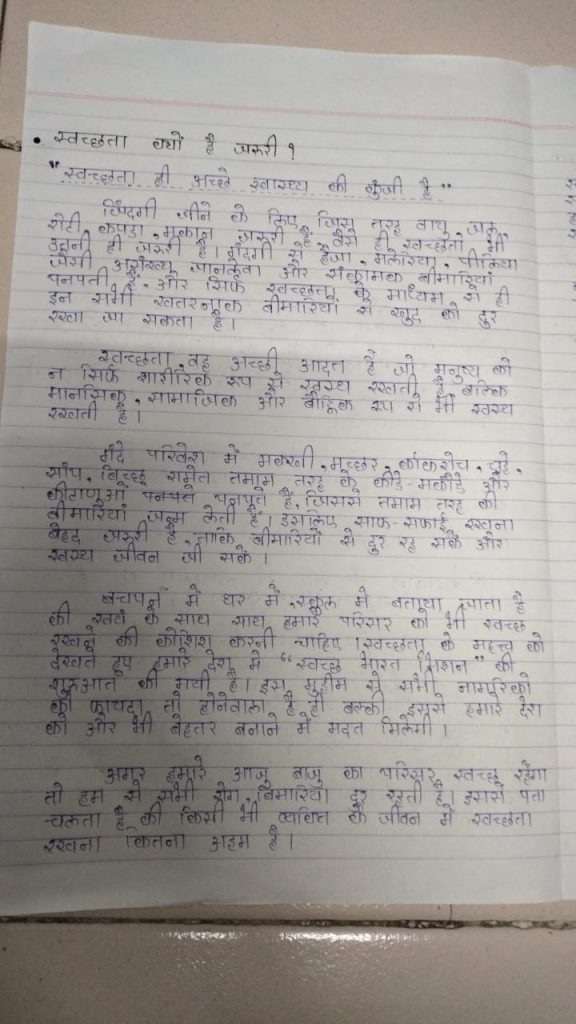 • स्वच्छता क्यों है जरुरी ?
"स्वच्छता ही अच्छे स्वास्थ्य की कुंजी है"
जिंदगी जीने के लिए जिस तरह वायु, जल,
रोटी, कपडा, मकान जरुरी है, वैसे ही स्वच्छता भी
उतनी ही जरुरी है। गंदगी से हैजा, मलेरिया, पीलिया
जैसी असंख्य जानलेवा और संक्रामक बीमारियां
पनपती है, और सिर्फ स्वच्छता के माध्यम से ही
इन सभी खतरनाक बीमारियों से खुद को दुर
रखा जा सकता है।
स्वच्छता वह अच्छी आदत है जो मनुष्य को
न सिर्फ शारीरिक रुप से स्वस्थ रखती है, बल्कि
मानसिक, सामाजिक और बौद्धिक रुप से भी स्वस्थ
रखती है।
गंदे परिवेश में मक्खी, मच्छर, कॉकरोच, चूहे,
सांप, बिच्छू समेत तमाम तरह के कीडे-मकौडे और
कीटाणुओं पनपते पनपते है, जिससे तमाम तरह की
बीमारियां जन्म लेती है। इसलिए साफ-सफाई रखना
बेहद जरुरी है, ताकि बीमारियों से दुर रह सके और
स्वस्थ जीवन जी सकें।
बचपन में घर में, स्कूल में बताया जाता है
की स्वयं के साथ साथ हमारे परिसर को भी स्वच्छ
रखने की कोशिश करनी चाहिए। स्वच्छता के महत्त्व को
देखते हुए हमारे देश में "स्वच्छ भारत मिशन" की
शुरुआत की गयी है। इस मुहीम से सभी नागरिको
को फायदा तो होनेवाला है ही बल्की इससे हमारे देश
को और भी बेहतर बनाने में मदत मिलेगी।
अगर हमारे आजु बाजु का परिसर स्वच्छ रहेगा
तो हम से सभी रोग, बिमारियां दुर रहती है। इससे पता
चलता है की किसी भी व्यक्ति के जीवन में स्वच्छता
रखना कितना अहम है।